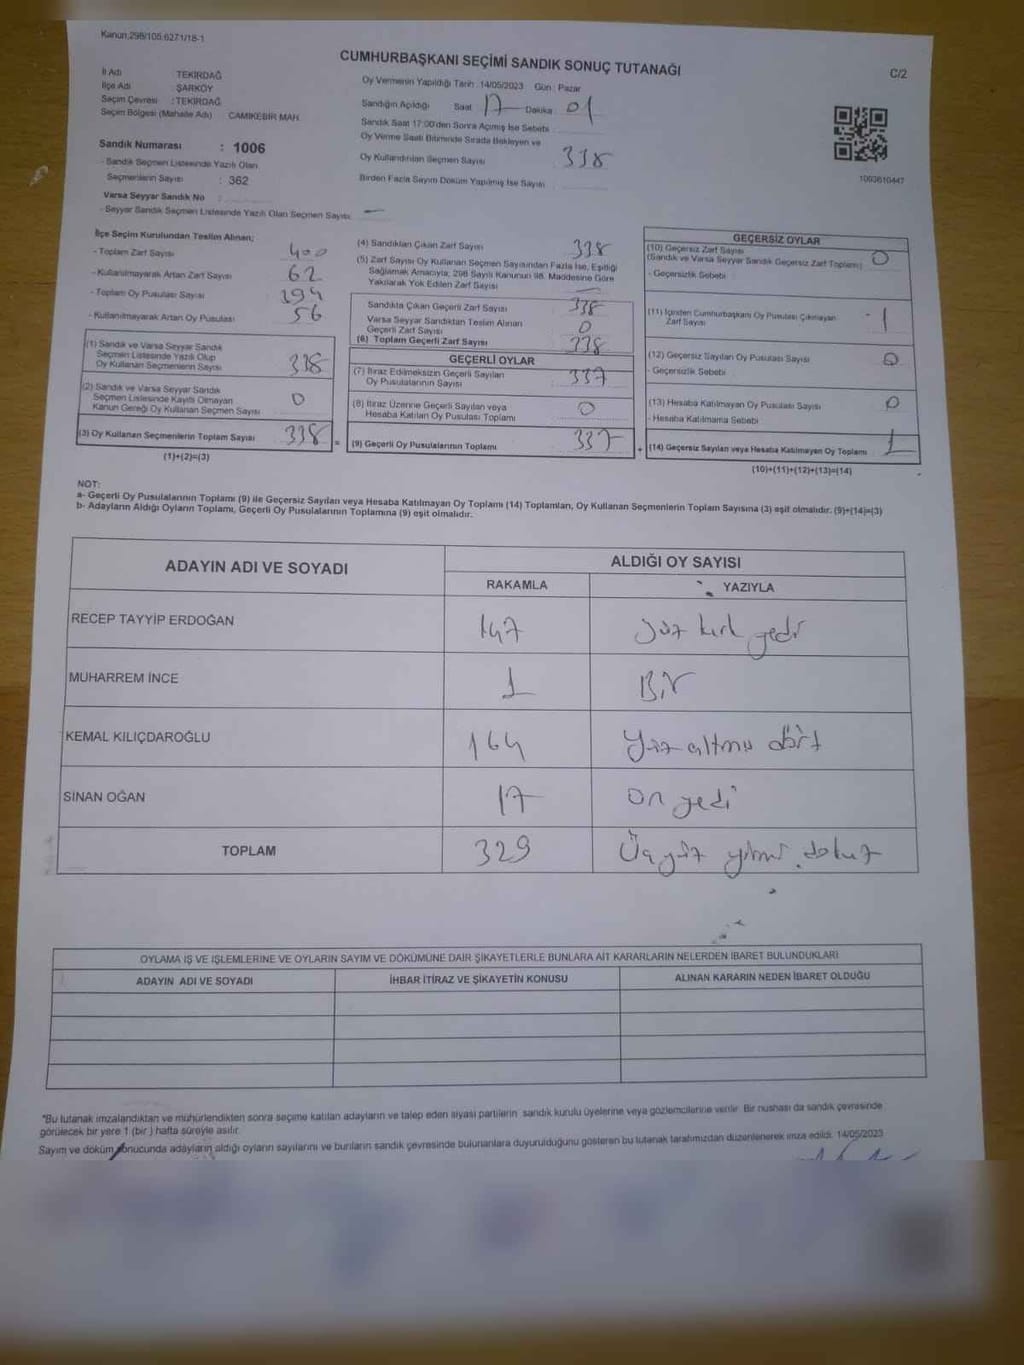 Kanun,298/105,6271/18-1
CUMHURBAŞKANI SEÇİMİ SANDIK SONUÇ TUTANAĞI
C/2
İl Adı TEKİRDAĞ
İlçe Adı ŞARKÖY
Seçim Çevresi : TEKİRDAĞ
Seçim Bölgesi (Mahalle Adı) CAMİKEBİR MAH.
Oy Vermenin Yapıldığı Tarih : 14/05/2023 Gün : Pazar
Sandığın Açıldığı Saat 17 Dakika : 01
Sandık Saat 17:00'den Sonra Açılmış İse Sebebi
Oy Verme Saati Bitiminde Sırada Bekleyen ve
Oy Kullandırılan Seçmen Sayısı 338
Birden Fazla Sayım Döküm Yapılmış İse Sayısı
1003610447
Sandık Numarası : 1006
- Sandık Seçmen Listesinde Yazılı Olan
Seçmenlerin Sayısı : 362
Varsa Seyyar Sandık No :
- Seyyar Sandık Seçmen Listesinde Yazılı Olan Seçmen Sayısı: —
İlçe Seçim Kurulundan Teslim Alınan;
- Toplam Zarf Sayısı 400
- Kullanılmayarak Artan Zarf Sayısı 62
- Toplam Oy Pusulası Sayısı 394
- Kullanılmayarak Artan Oy Pusulası 56
(1) Sandık ve Varsa Seyyar Sandık
Seçmen Listesinde Yazılı Olup
Oy Kullanan Seçmenlerin Sayısı 338
(2) Sandık ve Varsa Seyyar Sandık
Seçmen Listesinde Kayıtlı Olmayan
Kanun Gereği Oy Kullanan Seçmen Sayısı 0
(3) Oy Kullanan Seçmenlerin Toplam Sayısı 338 =
(1)+(2)=(3)
(4) Sandıktan Çıkan Zarf Sayısı 338
(5) Zarf Sayısı Oy Kullanan Seçmen Sayısından Fazla İse, Eşitliği
Sağlamak Amacıyla, 298 Sayılı Kanunun 98. Maddesine Göre
Yakılarak Yok Edilen Zarf Sayısı —
Sandıkta Çıkan Geçerli Zarf Sayısı 338
Varsa Seyyar Sandıktan Teslim Alınan
Geçerli Zarf Sayısı 0
(6) Toplam Geçerli Zarf Sayısı 338
GEÇERLİ OYLAR
(7) İtiraz Edilmeksizin Geçerli Sayılan
Oy Pusulalarının Sayısı 337
(8) İtiraz Üzerine Geçerli Sayılan veya
Hesaba Katılan Oy Pusulası Toplamı 0
(9) Geçerli Oy Pusulalarının Toplamı 337 +
GEÇERSİZ OYLAR
(10) Geçersiz Zarf Sayısı
(Sandık ve Varsa Seyyar Sandık Geçersiz Zarf Toplamı) 0
- Geçersizlik Sebebi
(11) İçinden Cumhurbaşkanı Oy Pusulası Çıkmayan
Zarf Sayısı 1
(12) Geçersiz Sayılan Oy Pusulası Sayısı 0
- Geçersizlik Sebebi
(13) Hesaba Katılmayan Oy Pusulası Sayısı 0
- Hesaba Katılmama Sebebi
(14) Geçersiz Sayılan veya Hesaba Katılmayan Oy Toplamı 1
(10)+(11)+(12)+(13)=(14)
NOT:
a- Geçerli Oy Pusulalarının Toplamı (9) ile Geçersiz Sayılan veya Hesaba Katılmayan Oy Toplamı (14) Toplamları, Oy Kullanan Seçmenlerin Toplam Sayısına (3) eşit olmalıdır. (9)+(14)=(3)
b- Adayların Aldığı Oyların Toplamı, Geçerli Oy Pusulalarının Toplamına (9) eşit olmalıdır.
ADAYIN ADI VE SOYADI
ALDIĞI OY SAYISI
RAKAMLA YAZIYLA
RECEP TAYYİP ERDOĞAN 147 Yüz kırk yedi
MUHARREM İNCE 1 Bir
KEMAL KILIÇDAROĞLU 164 Yüz altmış dört
SİNAN OĞAN 17 On yedi
TOPLAM 329 Üçyüz yirmi dokuz
OYLAMA İŞ VE İŞLEMLERİNE VE OYLARIN SAYIM VE DÖKÜMÜNE DAİR ŞİKAYETLERLE BUNLARA AİT KARARLARIN NELERDEN İBARET BULUNDUKLARI
ADAYIN ADI VE SOYADI İHBAR İTİRAZ VE ŞİKAYETİN KONUSU ALINAN KARARIN NEDEN İBARET OLDUĞU
"Bu tutanak imzalandıktan ve mühürlendikten sonra seçime katılan adayların ve talep eden siyasi partilerin sandık kurulu üyelerine veya gözlemcilerine verilir. Bir nushası da sandık çevresinde
görülecek bir yere 1 (bir ) hafta süreyle asılır.
Sayım ve döküm sonucunda adayların aldığı oyların sayılarını ve bunların sandık çevresinde bulunanlara duyurulduğunu gösteren bu tutanak tarafımızdan düzenlenerek imza edildi. 14/05/2023